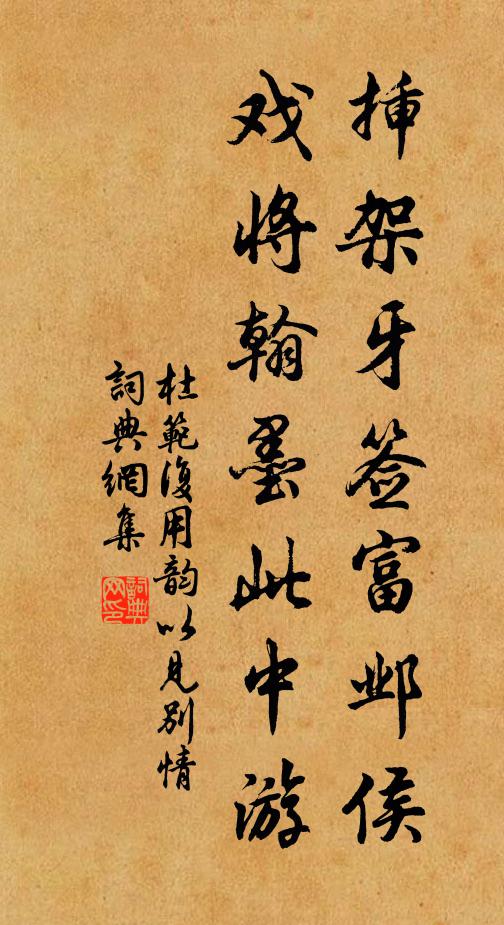 插架牙签富邺侯
戏将翰墨此中游
杜範復用韵以見别情
詞典網集
詞典
网印